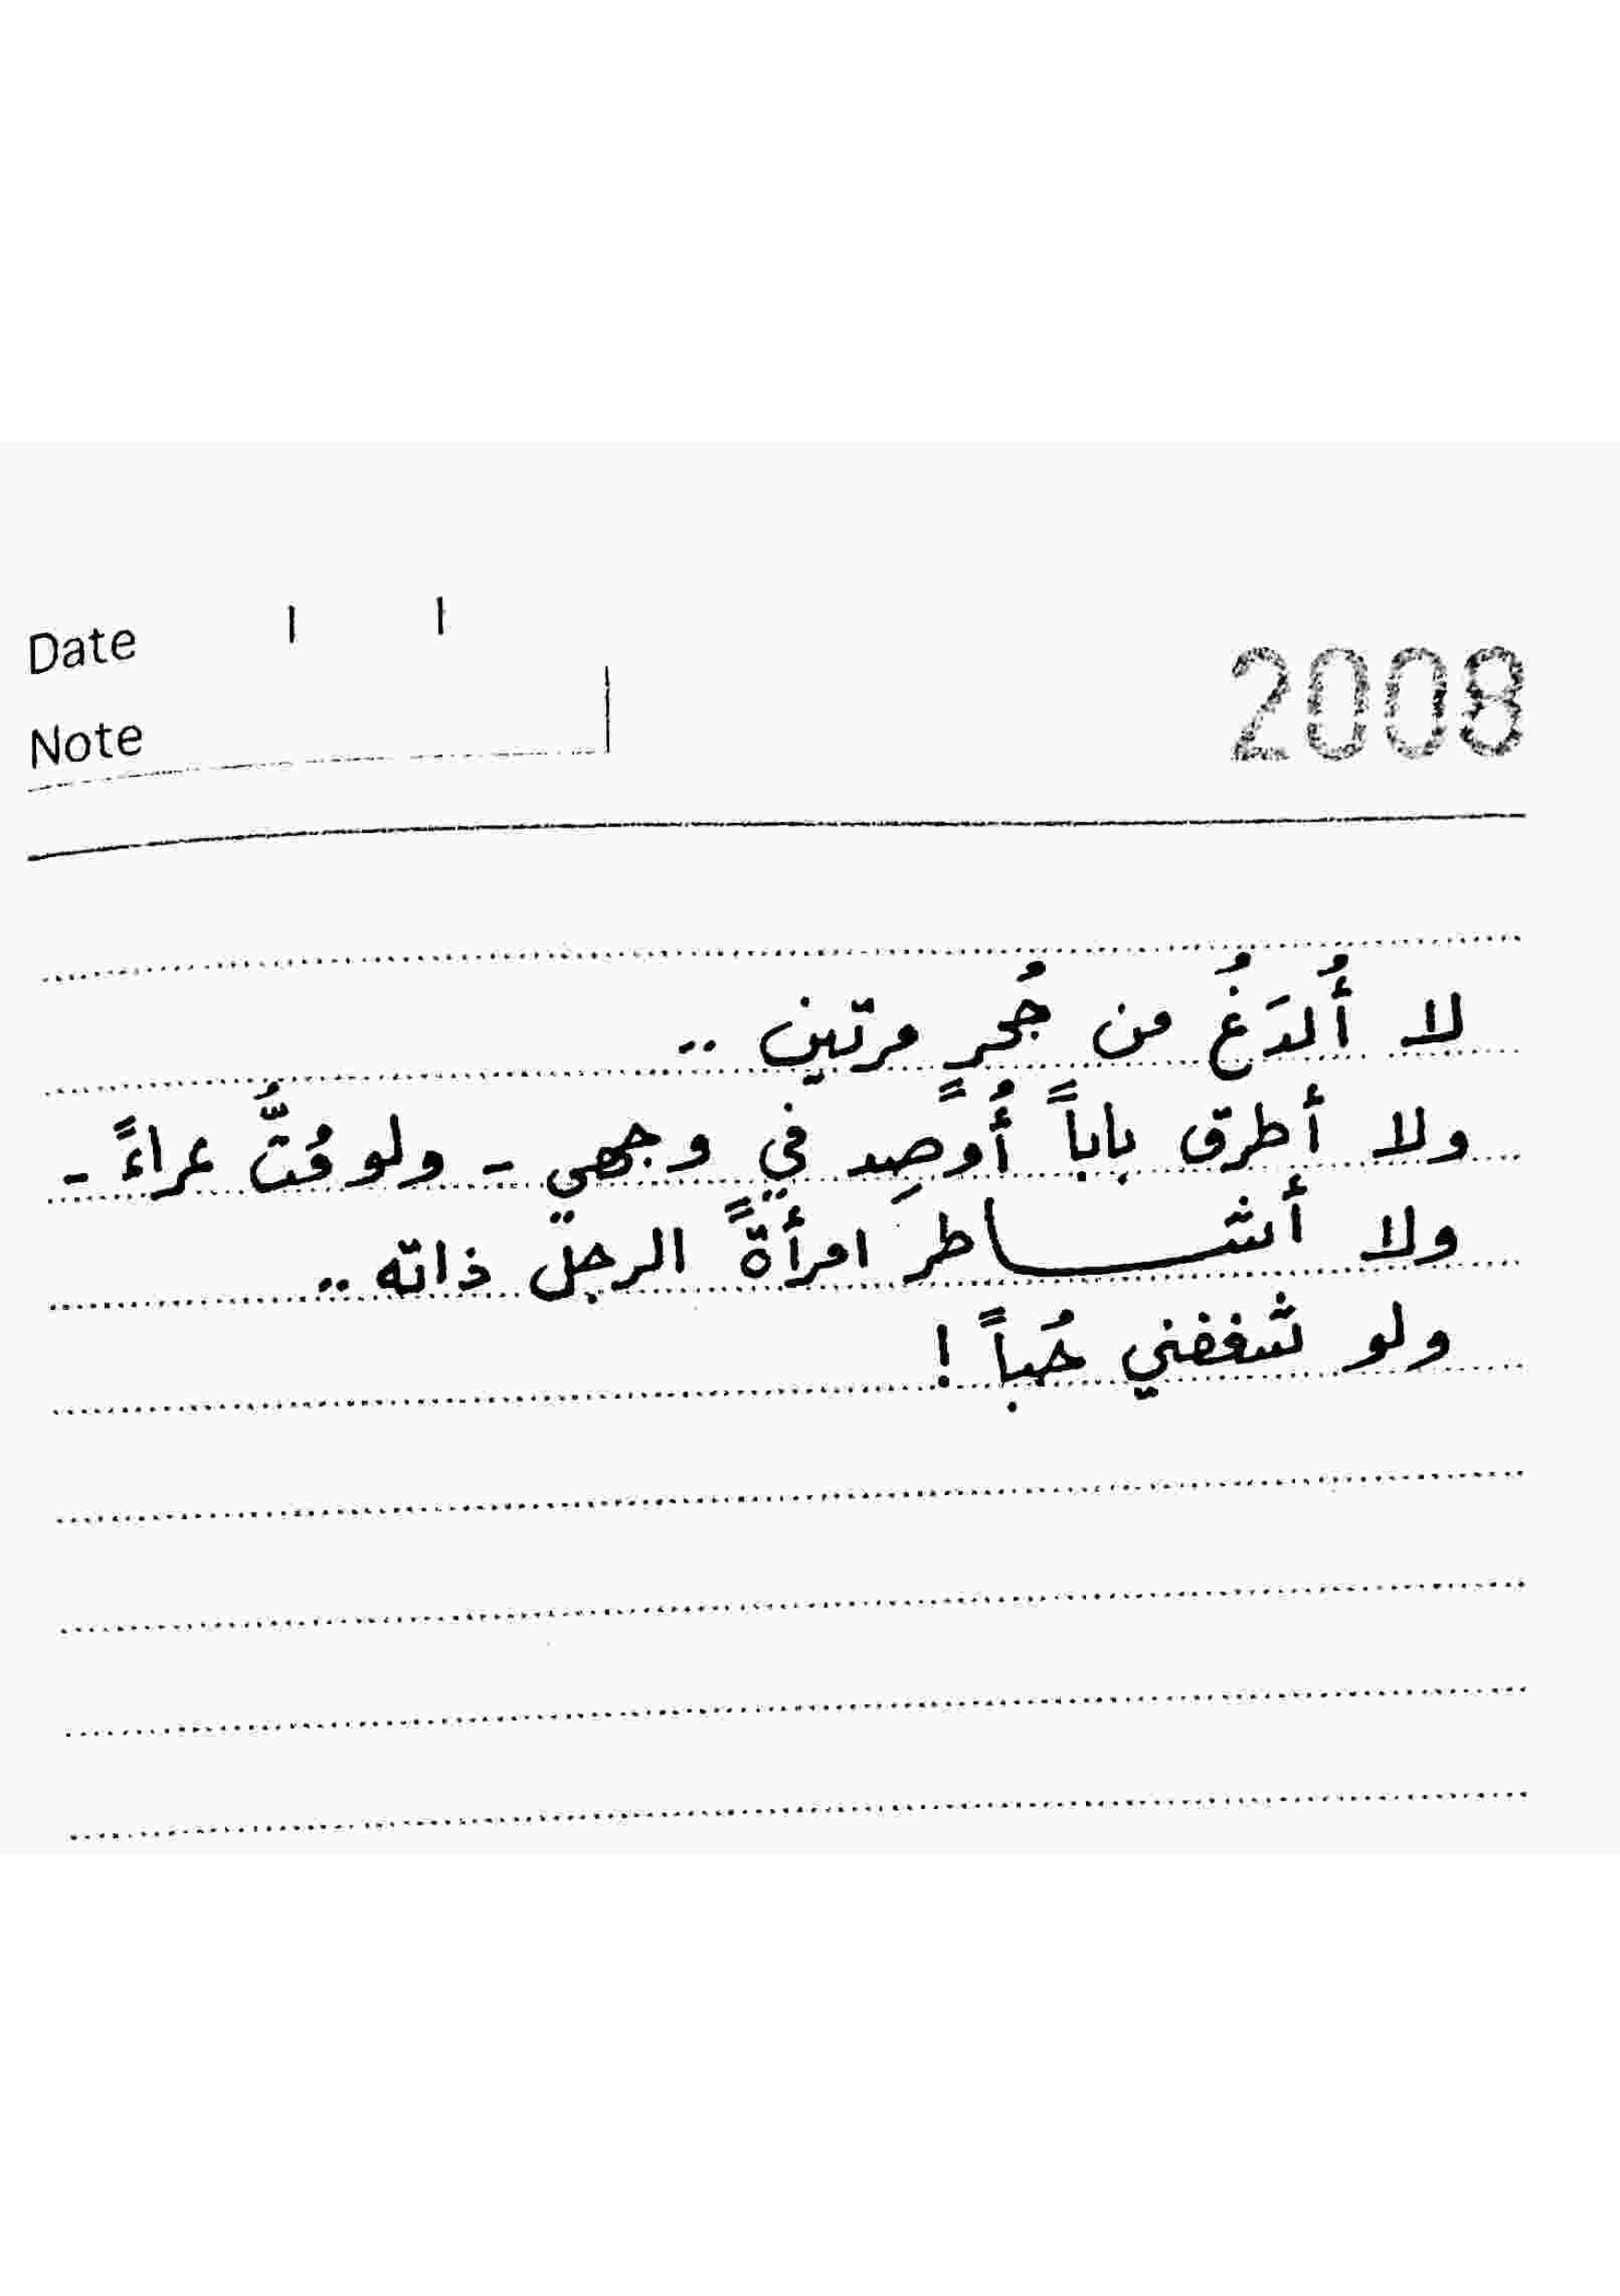 Date / /
2008
Note
لا أُلدَغُ من جُحرٍ مرتين ..
ولا أطرق باباً أُوصِد في وجهي - ولو مُتُّ عراءً -
ولا أشـــــاطر امرأةً الرجل ذاته ..
ولو شغفني حُباً !